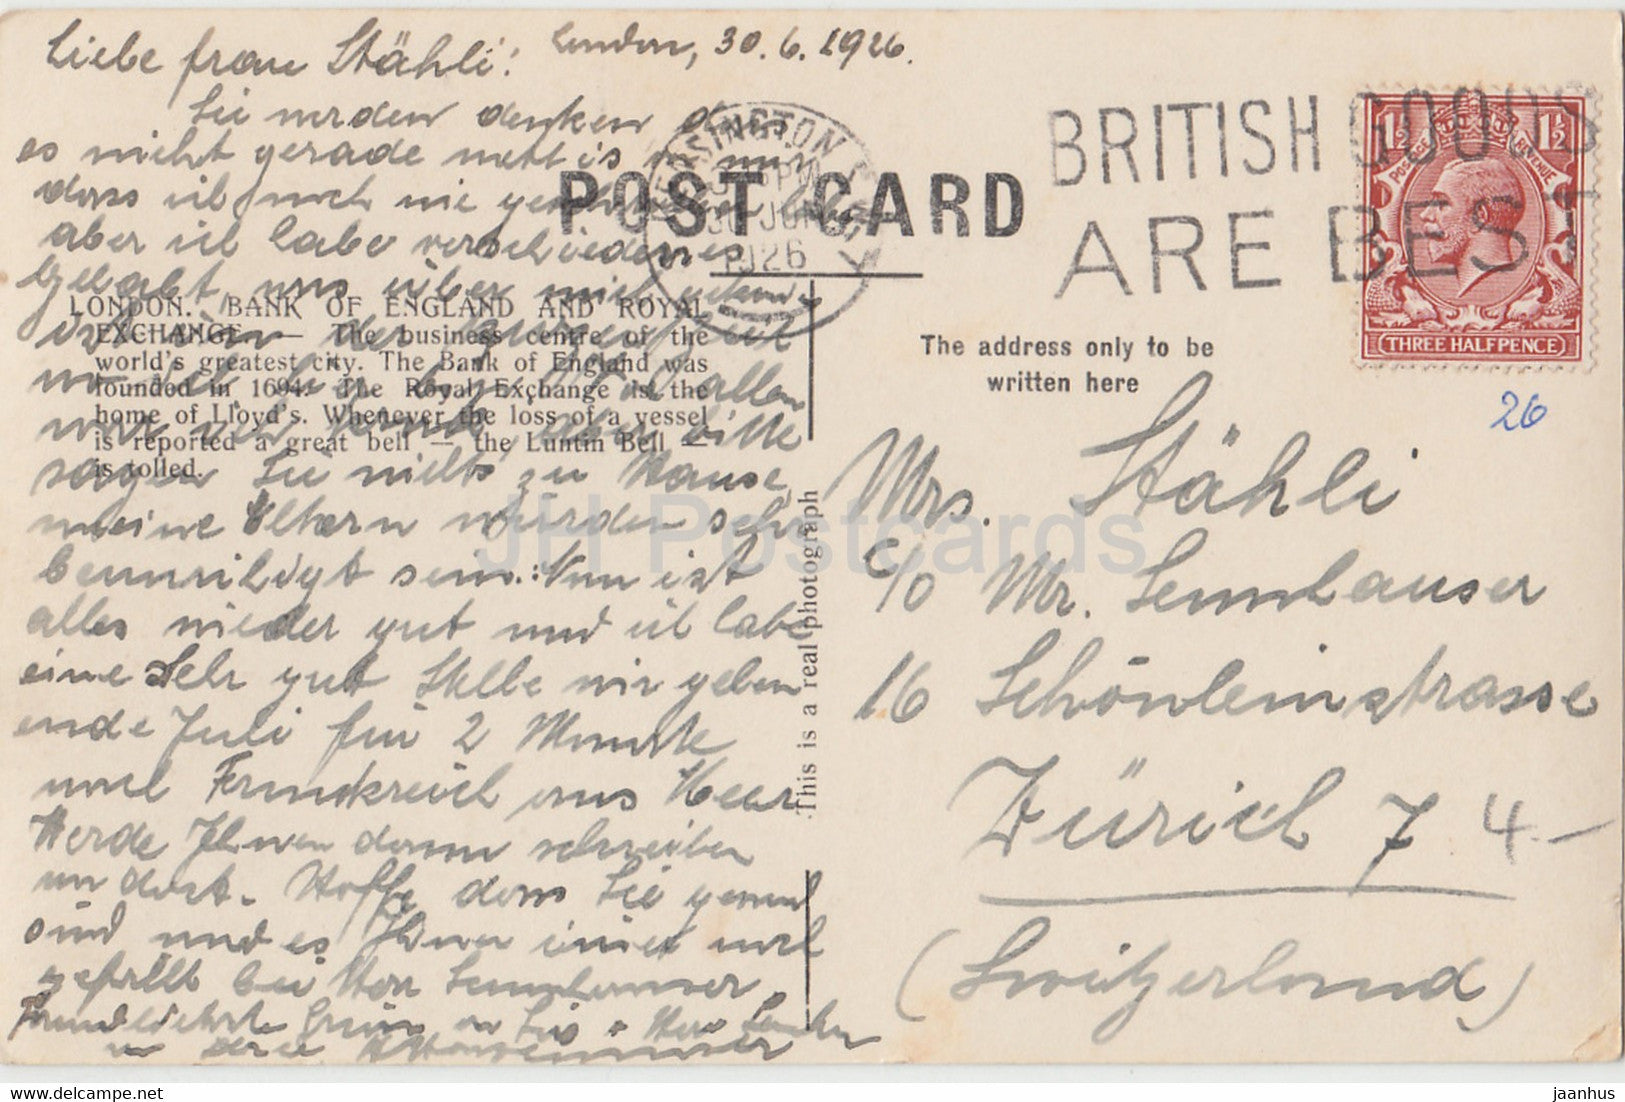 Liebe Frau Stähli!
London, 30.6.1926.
Sie werden denken dass
es nicht gerade nett is
dass ich noch nie geschrieben habe
aber ich habe verschiedenes
gehabt was
LONDON. BANK OF ENGLAND AND ROYAL
EXCHANGE.— The business centre of the
world's greatest city. The Bank of England was
founded in 1694. The Royal Exchange is the
home of Lloyd's. Whenever the loss of a vessel
is reported a great bell — the Luntin Bell —
is tolled.
aber bitte
sagen Sie nichts zu Hause,
meine Eltern würden sehr
beunruhigt sein. Nun ist
alles wieder gut und ich habe
eine sehr gute Stelle wir gehen
ende Juli für 2 Monate
nach Frankreich ans Meer
Werde Ihnen dann schreiben
von dort. Hoffe dass Sie gesund
sind und es Ihnen immer noch
gefällt bei Herr Sennhauser.
Freundlichste Grüsse an Sie + Herr
POST CARD
KENSINGTON
PM
30 JUN
1926
BRITISH GOODS
ARE BEST
1½ 1½
POSTAGE REVENUE
THREE HALFPENCE
The address only to be
written here
26
Mrs. Stähli
c/o Mr. Sennhauser
16 Schönleinstrasse
Zürich 7
4.-
(Switzerland)
This is a real photograph
JH Postcards
www.delcampe.net
jaanhus